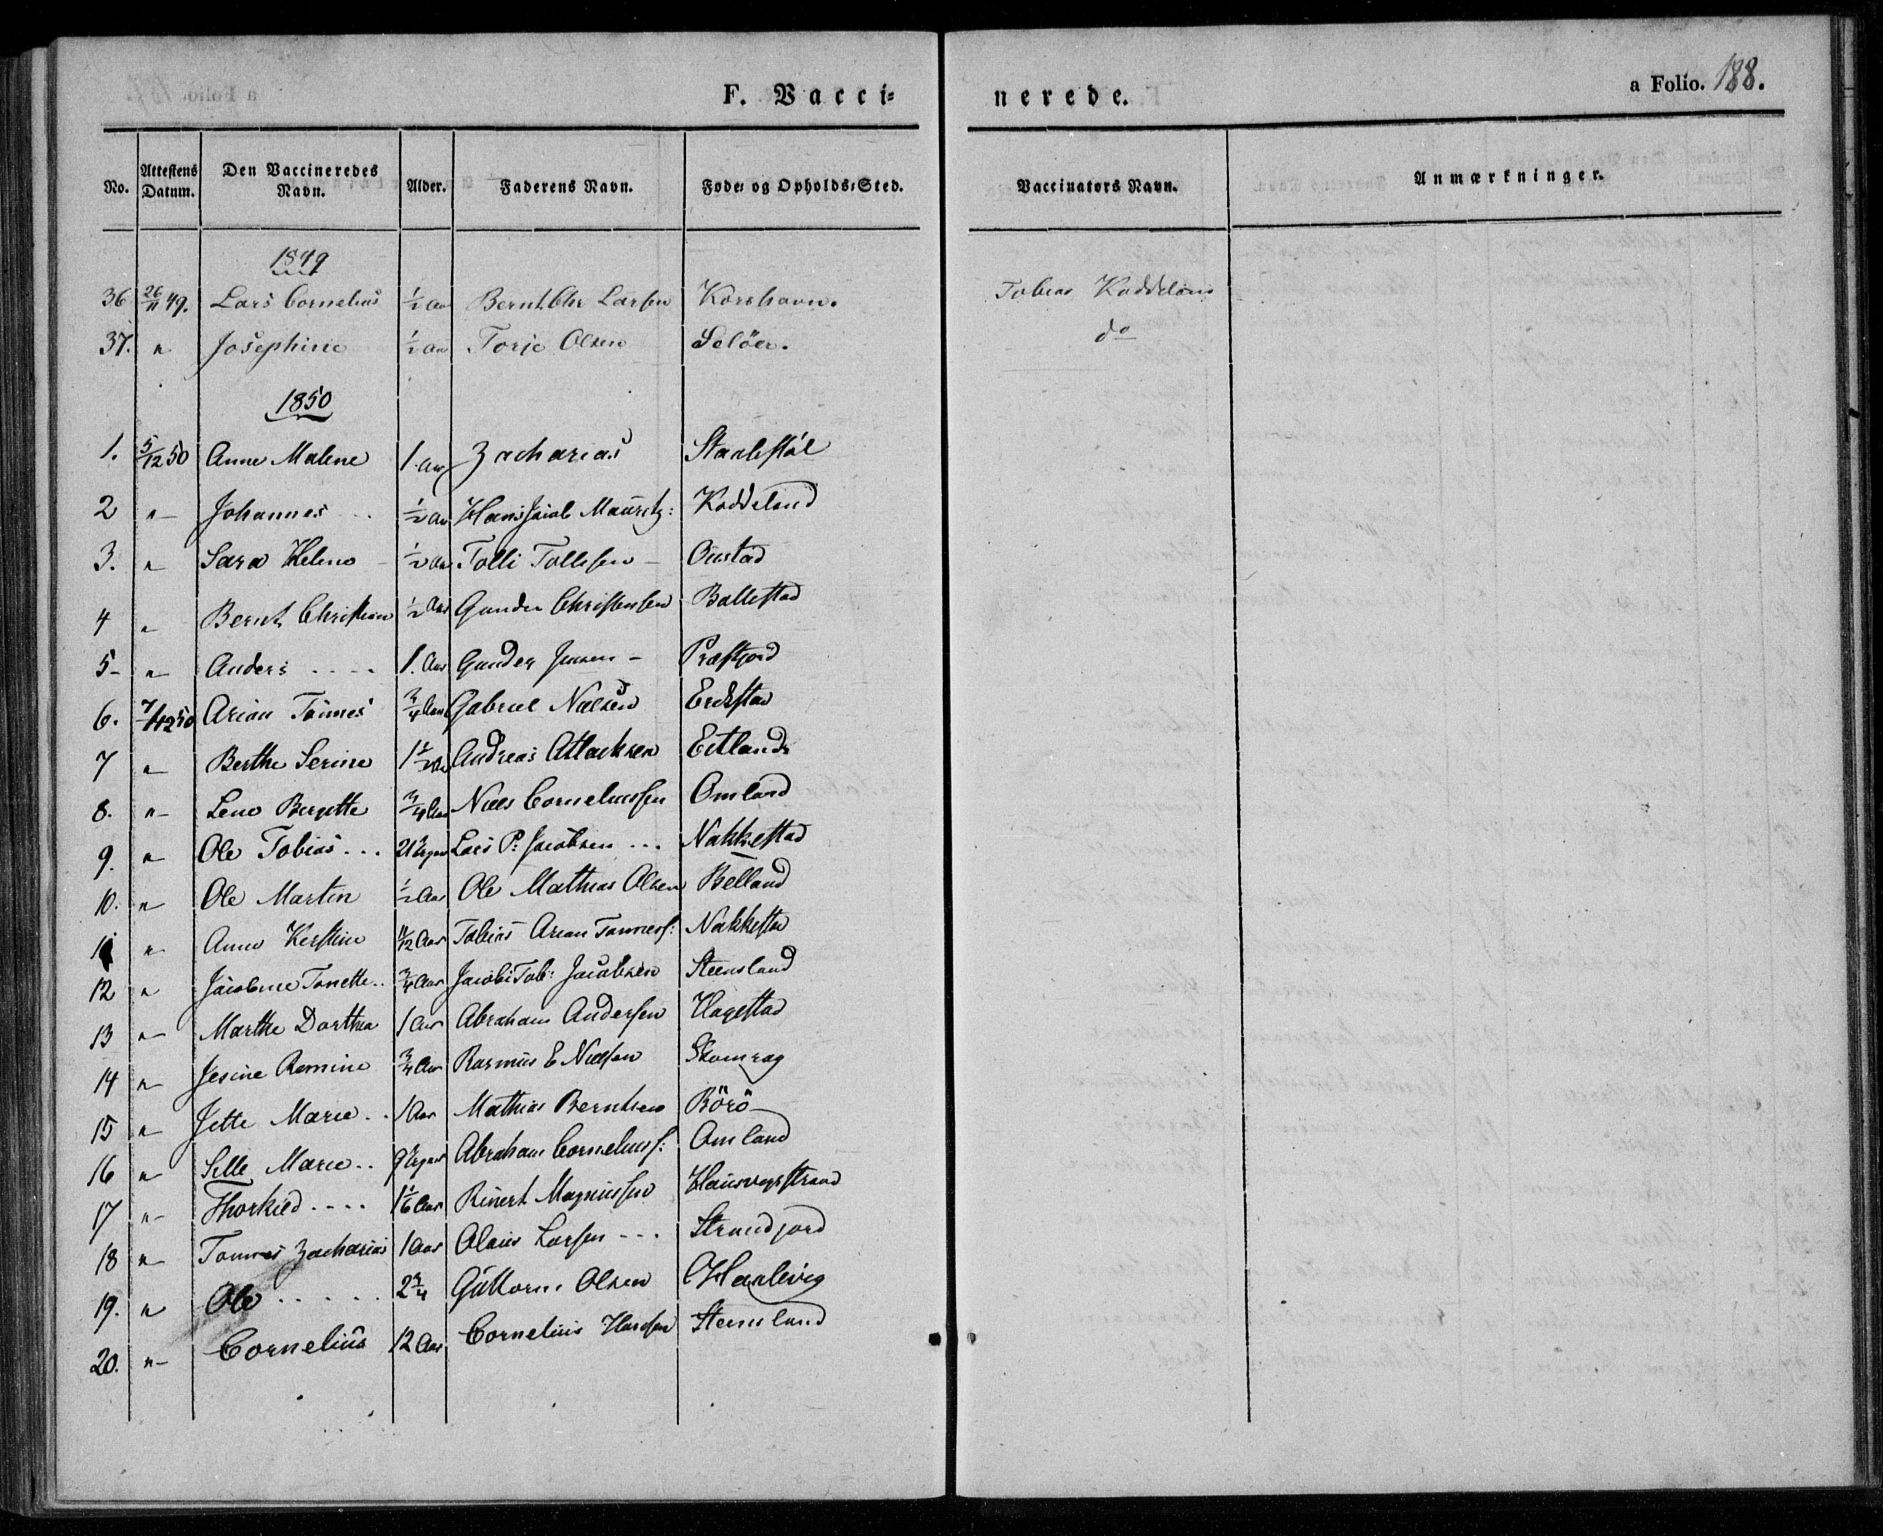 F. Vacci=
nerede.
a Folio. 188.
No. Attestens Datum. Den Vaccineredes Navn. Alder. Faderens Navn. Føde= og Opholds=Sted. Vaccinators Navn. Anmærkninger.
1849
36 26/11 49. Lars Cornelius 1/2 Aar Bernt Chr Larsen Korshavn. Tobias Koddeland
37. " Josephine 1/2 Aar Torje Olsen Selöer. do
1850
1. 5/12 50 Anne Malene 1. Aar Zacharias Staalestöl
2 " Johannes 1/2 Aar Hans Jacob Mauritz: Koddeland
3. " Sara Helene 1/2 Aar Tolli Tollefsen Oustad
4 " Bernt Christian 1/2 Aar Gunder Christensen Ballestad
5 " Anders 1. Aar Gunder Jensen Præstjord
6. 7/12 50 Arian Tönnes 3/4 Aar Gabriel Nielsen Erikstad
7 " Berthe Serine 1 1/2 Aar Andreas Atlacksen Eitland
8. " Lene Bergitte 3/4 Aar Niels Corneliussen Omland
9. " Ole Tobias 21 Uger Lars P: Jacobsen Nakkestad
10. " Ole Martin 1/2 Aar Ole Mathias Olsen Belland
11 " Anne Kerstine 11/12 Aar Tobias Arian Tönnes: Nakkestad
12 " Jacobine Tonette 3/4 Aar Jacob Tob: Jacobsen Steensland
13 " Marthe Dorthea 1 Aar Abraham Andersen Hagestad
14 " Jesine Romine 3/4 Aar Rasmus E Nielsen Skomrag
15 " Jette Marie 1 Aar Mathias Berntsen Börö
16 " Sille Marie 9 Uger Abraham Cornelius: Omland
17 " Thorkied 1 1/6 Aar Reinert Magnussen Hausvigstrand
18 " Tönnes Zacharias 1 Aar Olaus Larsen Strandjord
19. " Ole 2 3/4 Guttorm Olsen Haalevig
20. " Cornelius 12 Aar Cornelius Hansen Steensland